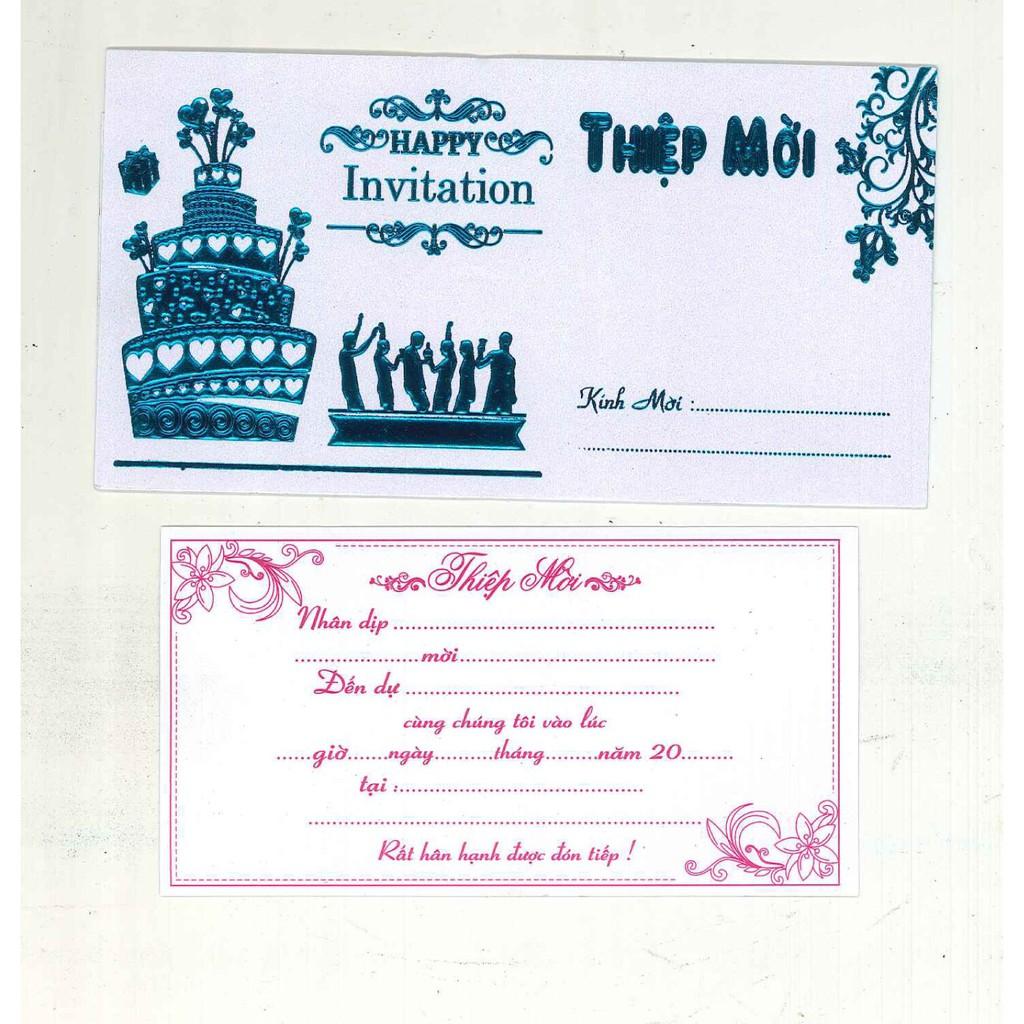 HAPPY
Invitation
THIỆP MỜI
Kính Mời :........................................
........................................
Thiệp Mời
Nhân dịp ........................................
....................mời........................................
Đến dự ........................................
cùng chúng tôi vào lúc
......giờ......ngày..........tháng.........năm 20.........
tại :........................................
........................................
Rất hân hạnh được đón tiếp !